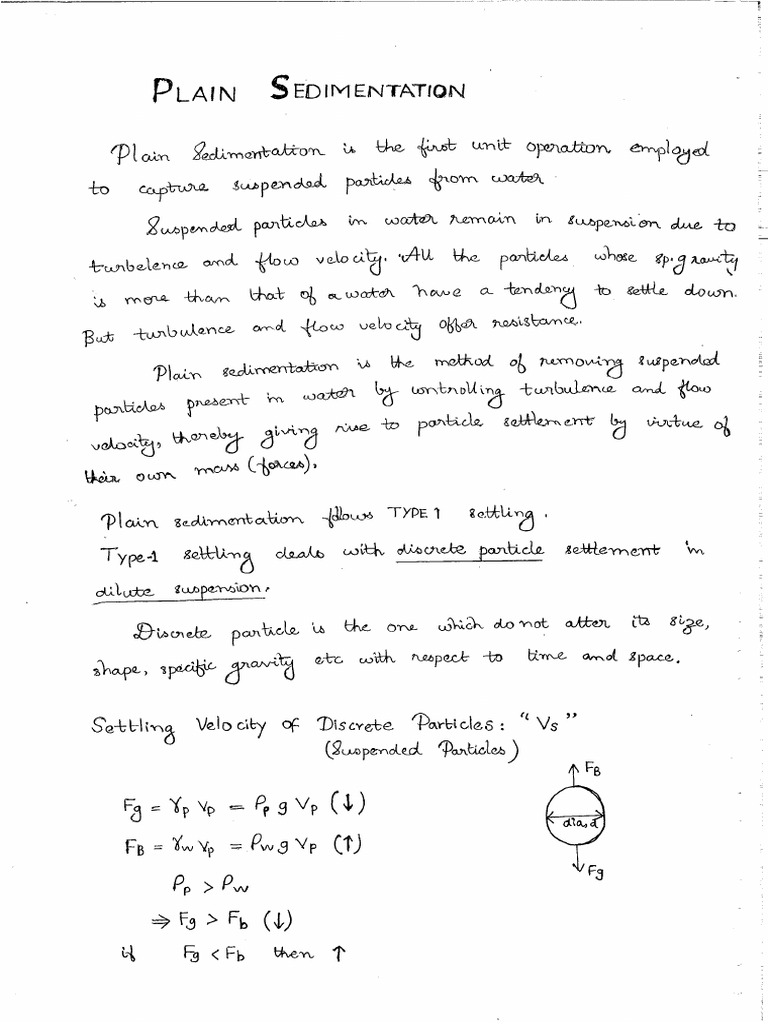 PLAIN SEDIMENTATION
Plain Sedimentation is the first unit operation employed
to capture suspended particles from water.
Suspended particles in water remain in suspension due to
turbelence and flow velocity. All the particles whose sp. gravity
is more than that of a water have a tendency to settle down.
But turbulence and flow velocity offer resistance.
Plain sedimentation is the method of removing suspended
particles present in water by controlling turbulence and flow
velocity, thereby giving rise to particle settlement by virtue of
their own mass (forces).
Plain sedimentation follows TYPE 1 settling.
Type-1 settling deals with discrete particle settlement in
dilute suspension.
Discrete particle is the one which do not alter its size,
shape, specific gravity etc with respect to time and space.
Settling Velocity of Discrete Particles: "Vs"
(Suspended Particles)
FB
Fg = γp Vp = ρp g Vp (↓)
dia, d
FB = γw Vp = ρw g Vp (↑)
Fg
ρp > ρw
⇒ Fg > Fb (↓)
if Fg < Fb then ↑